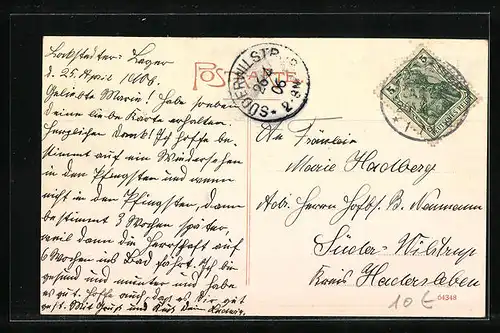 Lockstedter-Lager
d. 25. April 1906.
Geliebte Marie! Habe soeben
deine liebe Karte erhalten
herzlichen Dank! Ich hoffe be-
stimmt auf ein Wiedersehen
in den Pfingsten und wenn
nicht in den Pfingsten, dann
bestimmt 3 Wochen später,
weil dann die Herrschaft auf
6 Wochen ins Bad fährt. Ich bin
gesund und munter und habe
es gut. Hoffe auch, daß es Dir gut
geht. Mit Gruß und Kuß Dein Ludwig.
POSTKARTE
SÜDERWILSTRUP
26.4
06
2-8N
5
5
An Fräulein
Marie Hadberg
Adr. Herrn Hofbs. B. Naumann
Süder-Wilstrup
Kreis Hadersleben
64348
10 €